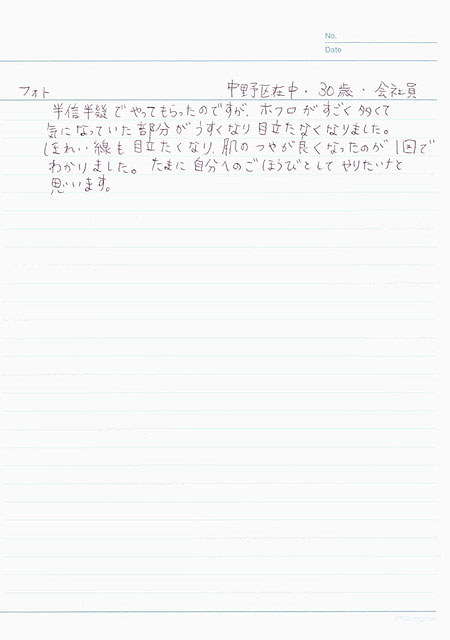 No.
Date
フォト　中野区在中・30歳・会社員
半信半疑でやってもらったのですが、ホクロがすごく多くて
気になっていた部分がうすくなり目立たなくなりました。
ほれい線も目立たくなり、肌のつやが良くなったのが1回で
わかりました。たまに自分へのごほうびとしてやりたいナと
思います。